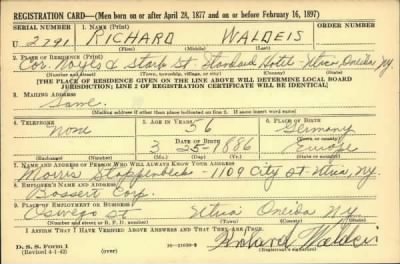 REGISTRATION CARD—(Men born on or after April 28, 1877 and on or before February 16, 1897)
SERIAL NUMBER 1. NAME (Print) ORDER NUMBER
U 2791 RICHARD WALDEIS
(First) (Middle) (Last)
2. PLACE OF RESIDENCE (Print)
Cor. Noyes & Stark St Standard Hotel - Utica, Oneida Ny.
(Number and street) (Town, township, village, or city) (County) (State)
[THE PLACE OF RESIDENCE GIVEN ON THE LINE ABOVE WILL DETERMINE LOCAL BOARD
JURISDICTION; LINE 2 OF REGISTRATION CERTIFICATE WILL BE IDENTICAL]
3. MAILING ADDRESS
Same.
[Mailing address if other than place indicated on line 2. If same insert word same]
4. TELEPHONE 5. AGE IN YEARS 6. PLACE OF BIRTH
None 56 Germany
DATE OF BIRTH (Town or county)
3 25 1886 Europe
(Exchange) (Number) (Mo.) (Day) (Yr.) (State or country)
7. NAME AND ADDRESS OF PERSON WHO WILL ALWAYS KNOW YOUR ADDRESS
Morris 1109 City St Utica, Ny.
8. EMPLOYER'S NAME AND ADDRESS
Bossert Corp.
9. PLACE OF EMPLOYMENT OR BUSINESS
Oswego St Utica Oneida Ny
(Number and street or R. F. D. number) (Town) (County) (State)
I AFFIRM THAT I HAVE VERIFIED ABOVE ANSWERS AND THAT THEY ARE TRUE.
D. S. S. Form 1
(Revised 4-1-42) (over) Richard Waldeis
(Registrant's signature)